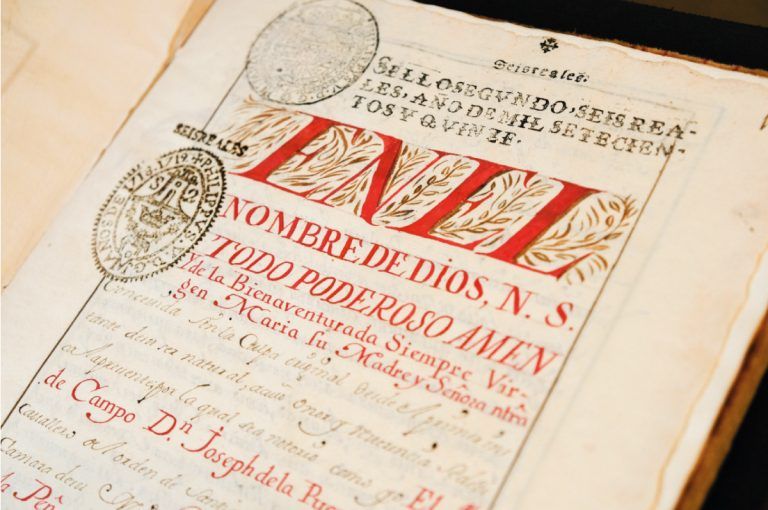 Seisreales.
SELLO SEGVNDO, SEIS REA-
LES, AÑO DE MIL SETECIEN-
TOS Y QVINZE.
SEISREALES
1718.1719.PHILIPPVS.V.
EN EL
NOMBRE DE DIOS, N. S.
TODO PODEROSO AMEN
Y de la Bienaventurada Siempre Vir-
gen Maria su Madre y Señora ntrâ
Concevida sin la Culpa original desde
de su ser natural,
la presente por la qual sea notorio como yo El M
de Campo Dn Joseph de la Pue
cavallero Orden de
Camara de su
la Peñ